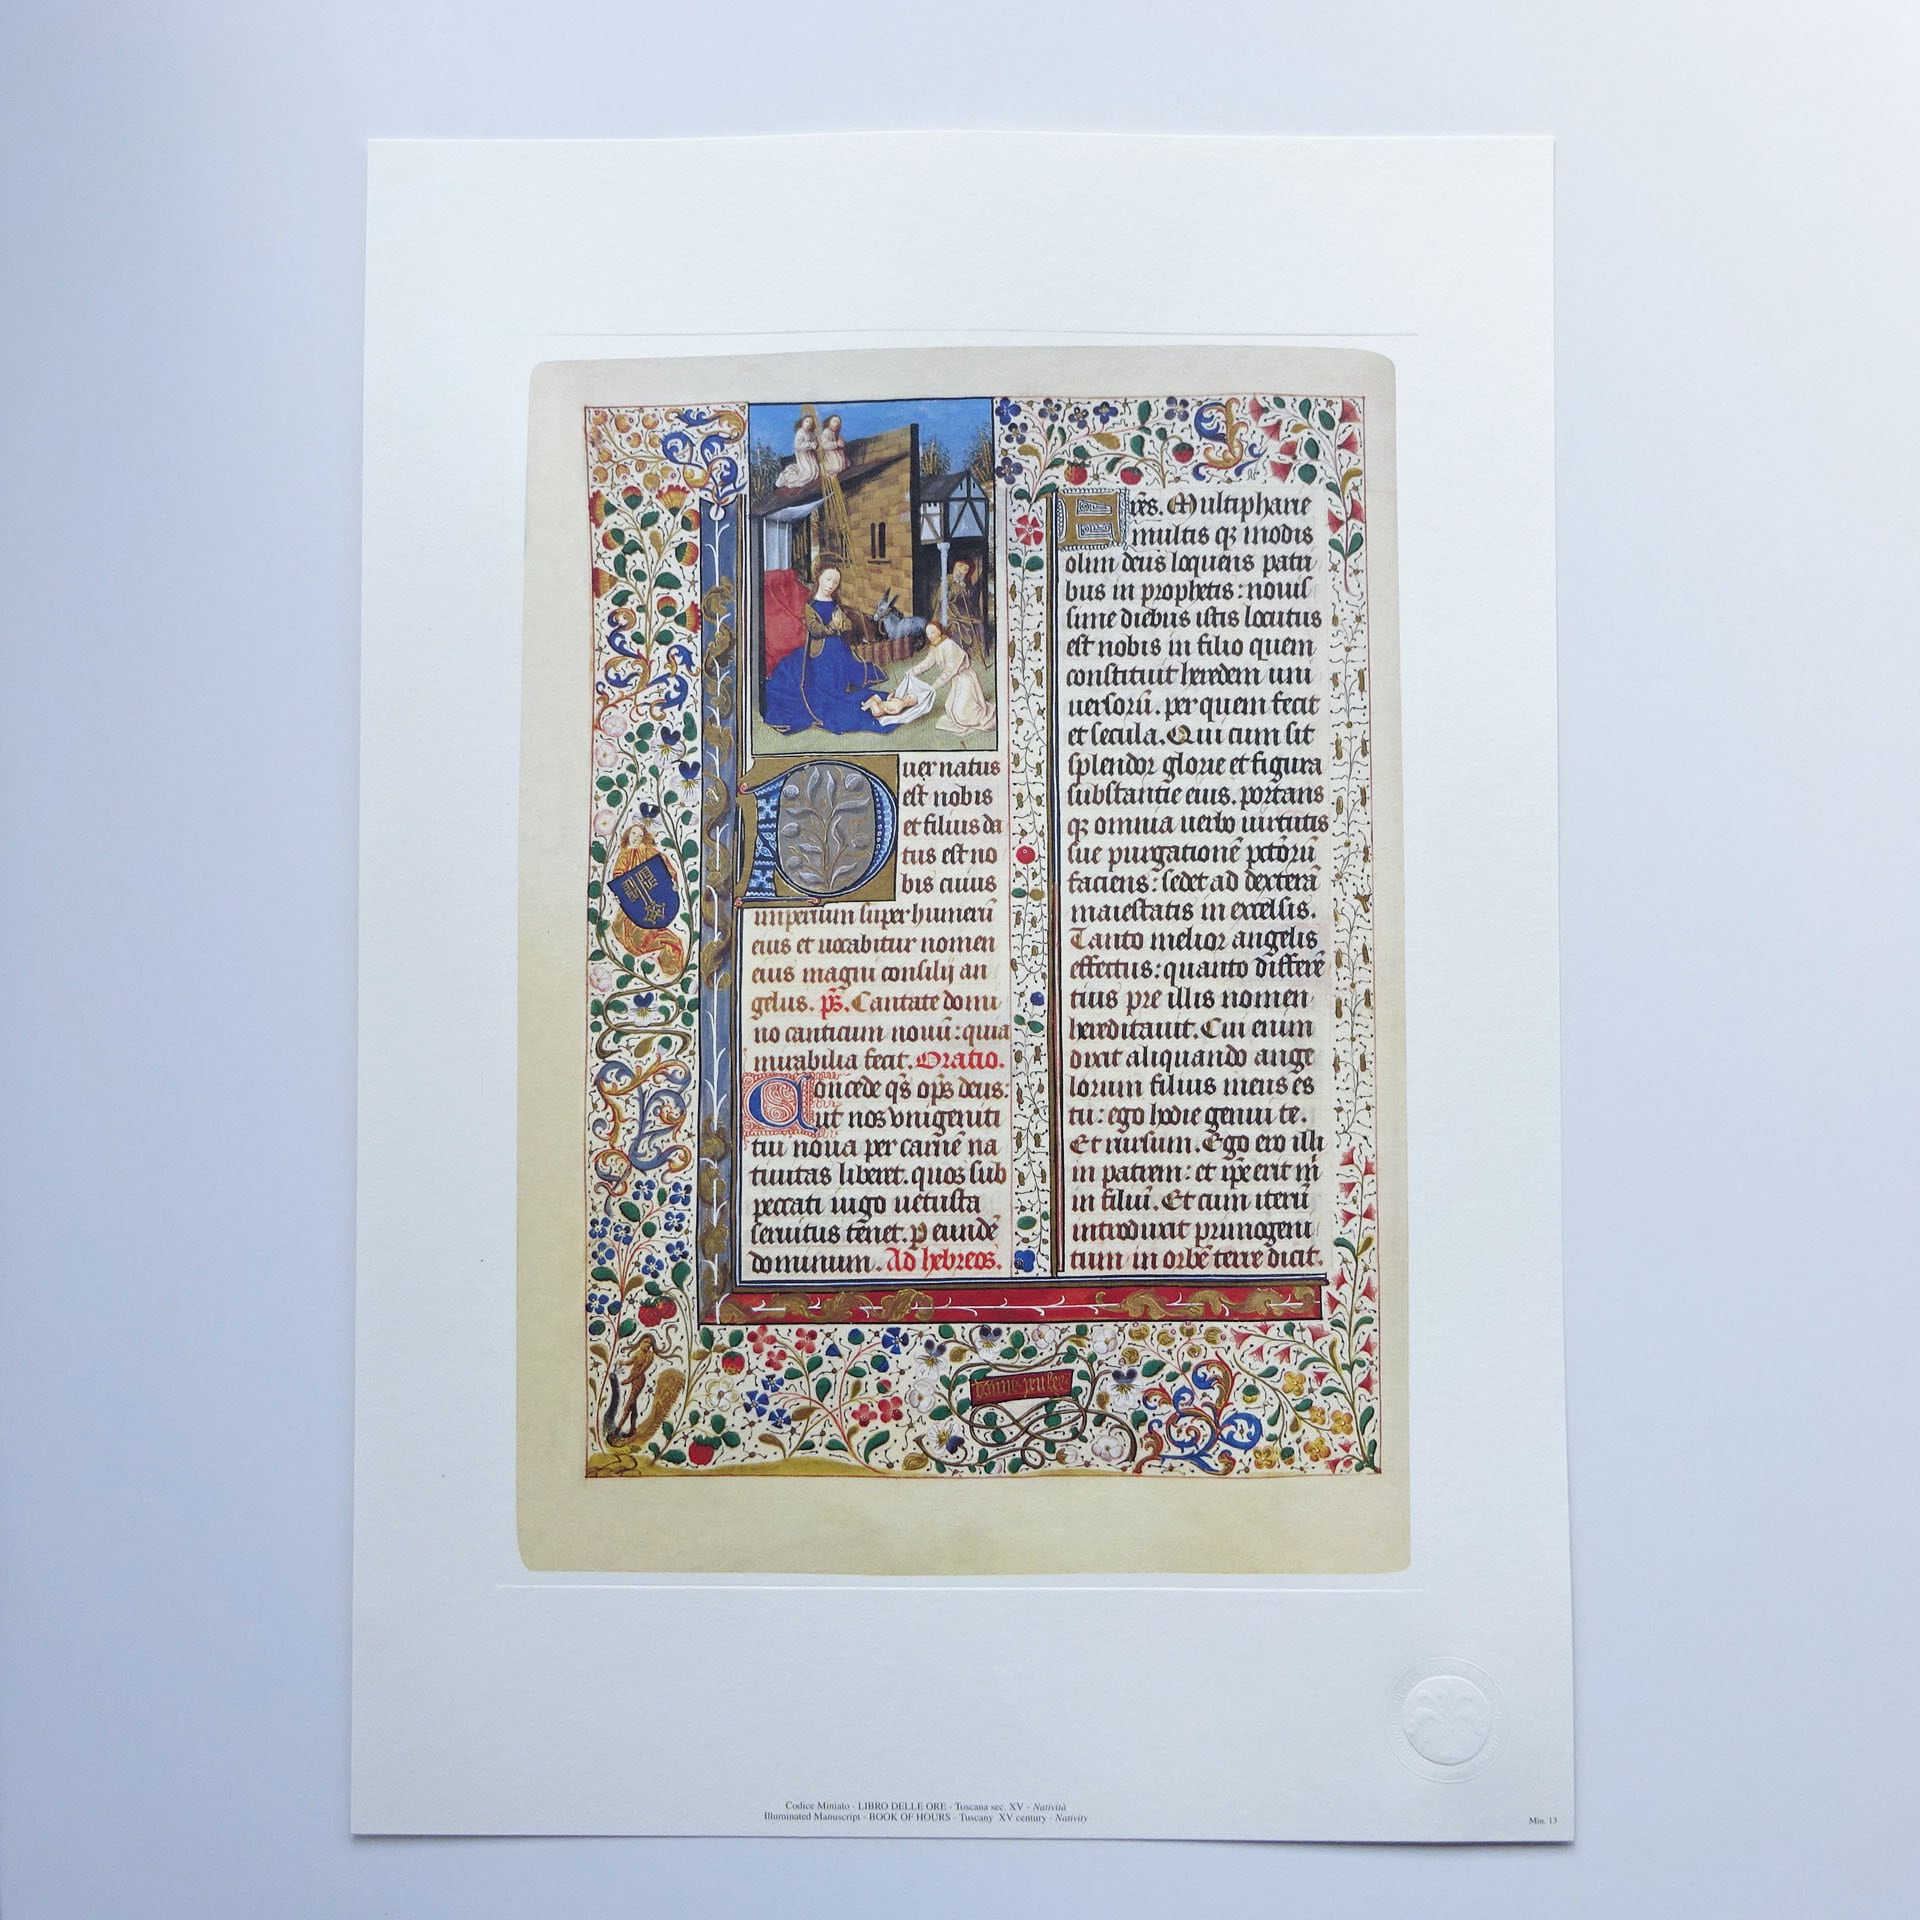 Puer natus
est nobis
et filius da
tus est no
bis cuius
imperium super humerū
eius et uocabitur nomen
eius magni consilij an
gelus. ps̄. Cantate domi
no canticum nouū: quia
mirabilia fecit. Oratio.
Concede qs̄ op̄s deus:
ut nos vnigeniti
tui noua per carnē na
tiuitas liberet. quos sub
peccati iugo uetusta
seruitus tenet. p eundē
dominum. Ad hebreos.
Fr̄es. Multipharie
multis qꝫ modis
olim deus loquens patri
bus in prophetis: nouis
sime diebus istis locutus
est nobis in filio quem
constituit heredem uni
uersorū. per quem fecit
et secula. Qui cum sit
splendor glorie et figura
substantie eius. portans
qꝫ omnia uerbo uirtutis
sue purgationē pctōrū
faciens: sedet ad dexterā
maiestatis in excelsis.
Tanto melior angelis
effectus: quanto differē
tius pre illis nomen
hereditauit. Cui enim
dixit aliquando ange
lorum filius meus es
tu: ego hodie genui te.
Et rursum. Ego ero illi
in patrem: et ip̄e erit m̄
in filiū. Et cum iterū
introduxit primogeni
tum in orbē terre dicit.
Codice Miniato - LIBRO DELLE ORE - Toscana sec. XV - Natività
Illuminated Manuscript - BOOK OF HOURS - Tuscany XV century - Nativity
Min. 13